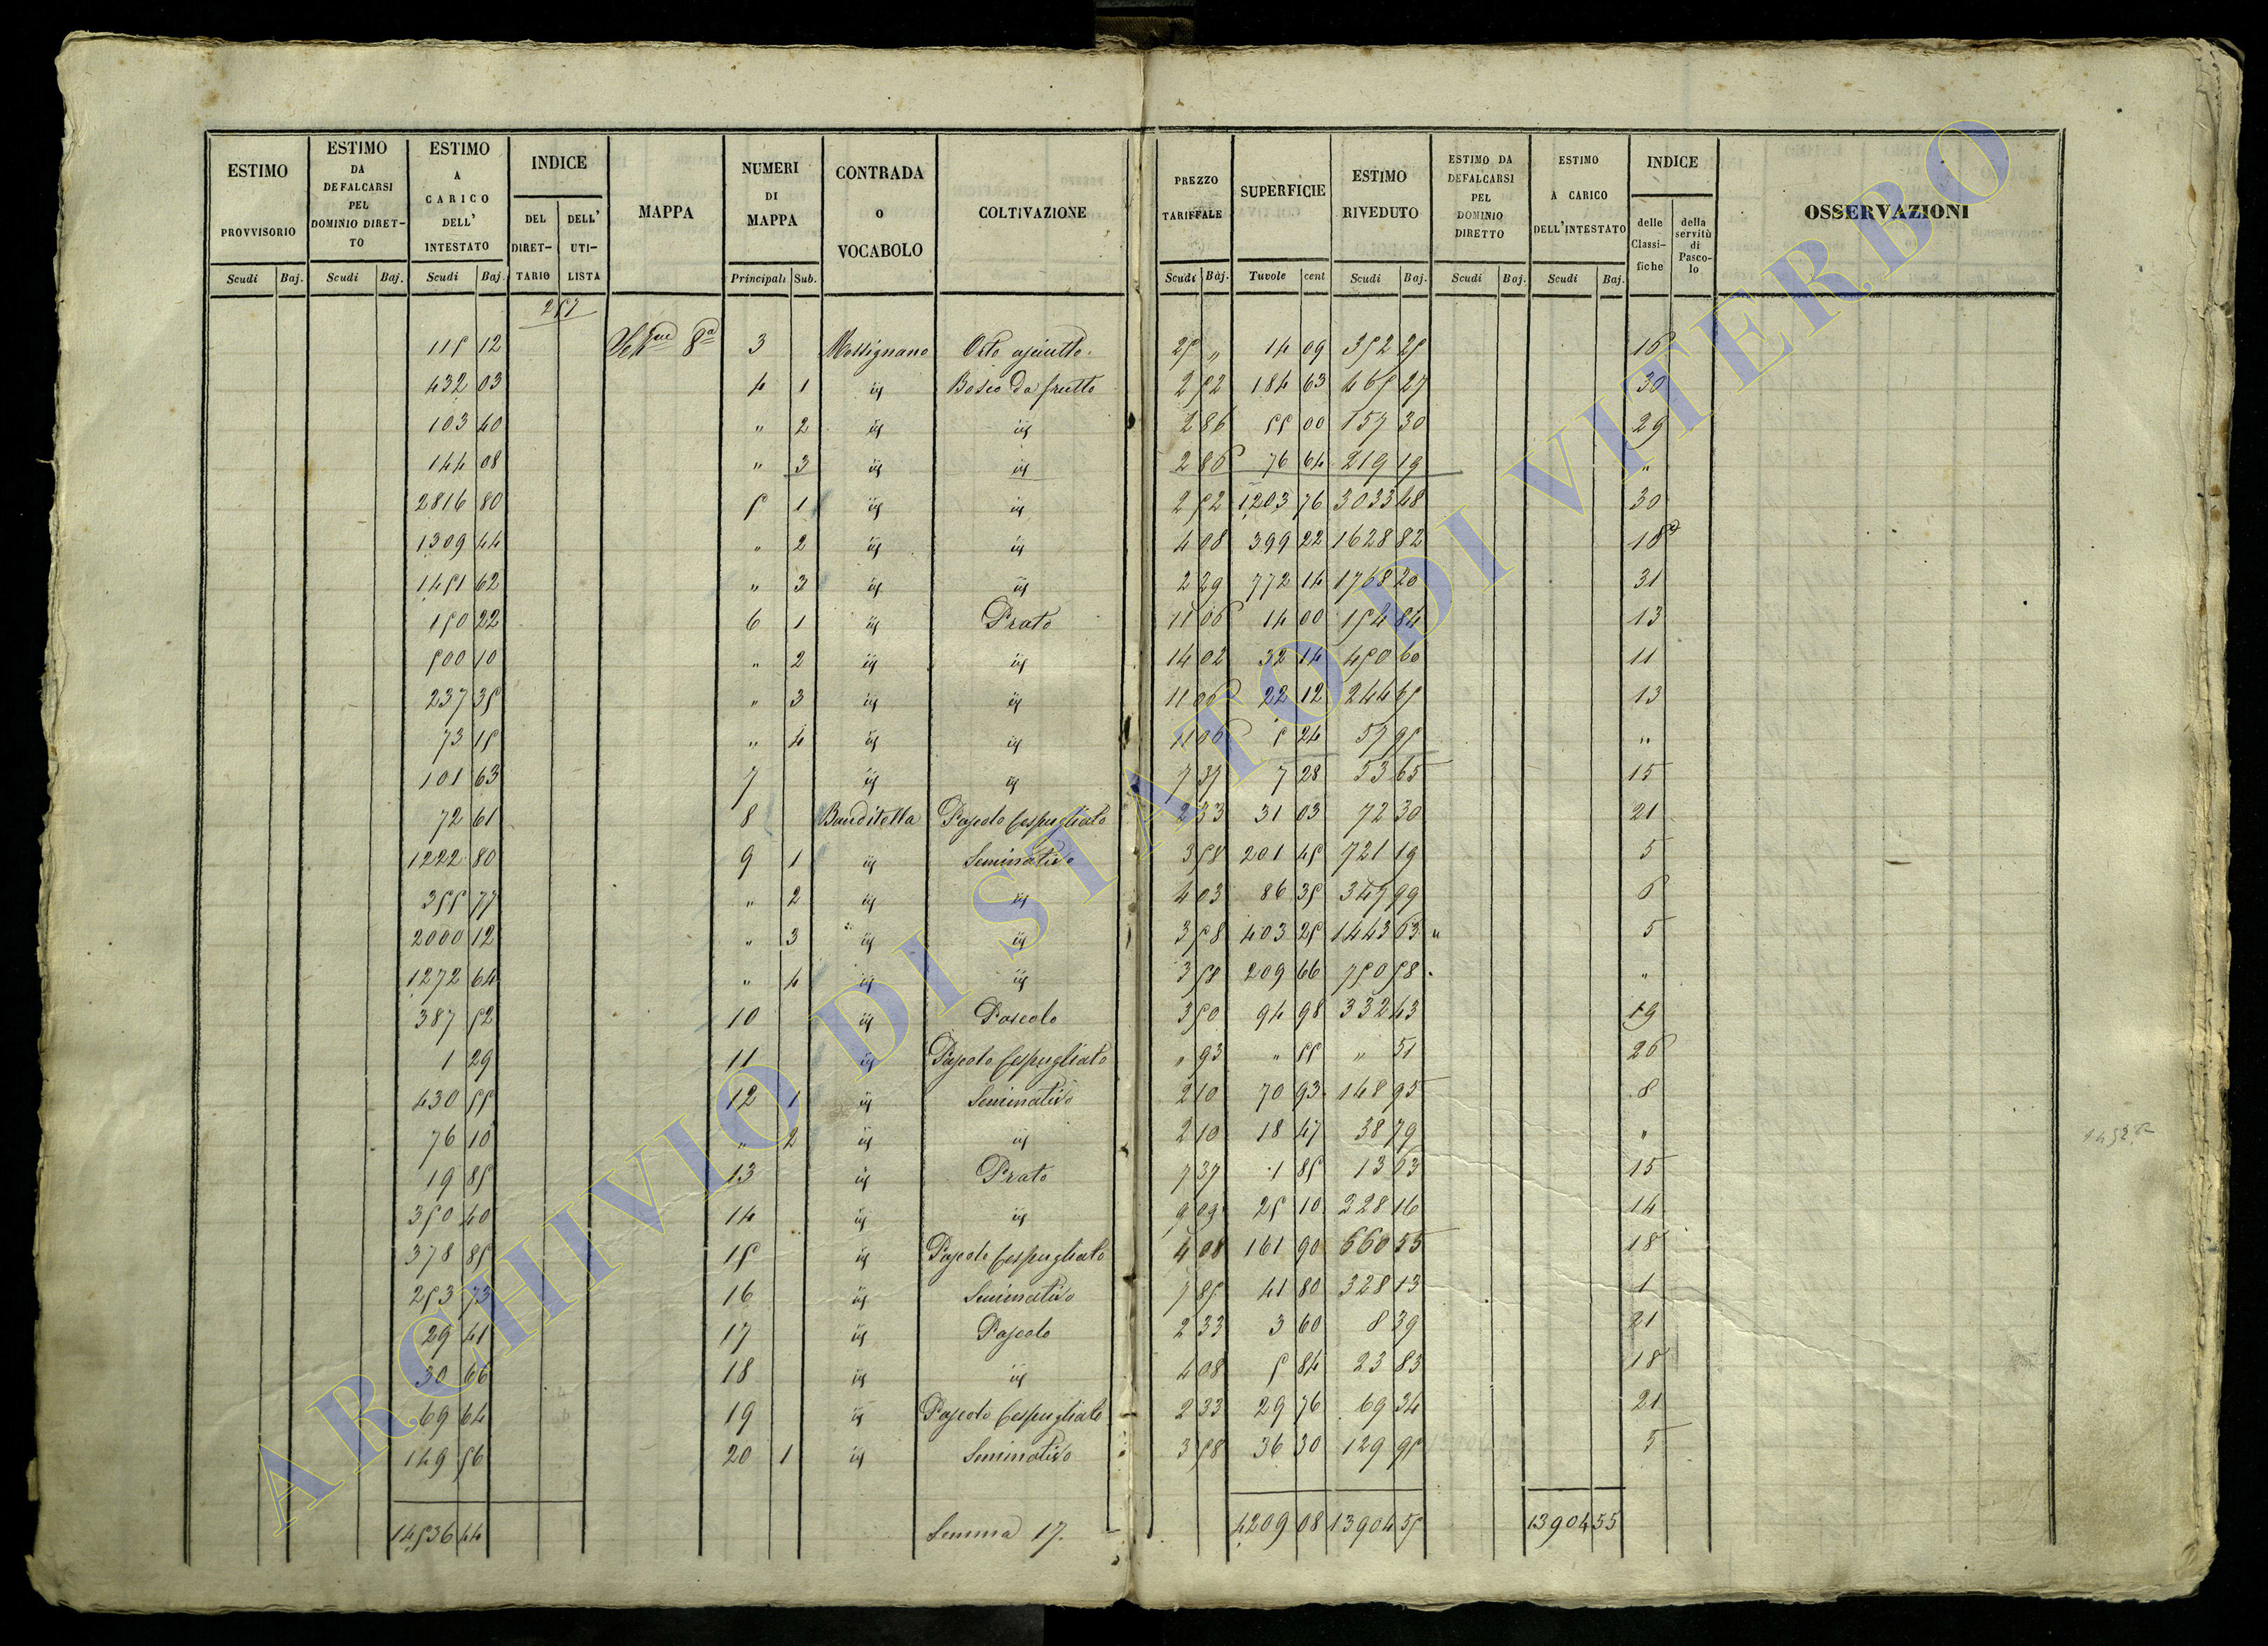 ESTIMO PROVVISORIO | ESTIMO DA DEFALCARSI PEL DOMINIO DIRETTO | ESTIMO A CARICO DELL' INTESTATO | INDICE | MAPPA | NUMERI DI MAPPA | CONTRADA o VOCABOLO | COLTIVAZIONE | PREZZO TARIFFALE | SUPERFICIE | ESTIMO RIVEDUTO | ESTIMO DA DEFALCARSI PEL DOMINIO DIRETTO | ESTIMO A CARICO DELL'INTESTATO | INDICE | OSSERVAZIONI
DEL DIRETTARIO | DELL' UTILISTA | delle Classifiche | della servitù di Pascolo
Scudi | Baj. | Scudi | Baj. | Scudi | Baj. | Principali | Sub. | Scudi | Baj. | Tavole | cent | Scudi | Baj. | Scudi | Baj. | Scudi | Baj.
257
115 12 | 8ª | 3 | Mossignano | Orto asciutto | 25 " | 14 09 | 352 25 | 16
432 03 | 4 | 1 | id | Bosco da frutto | 2 52 | 184 63 | 465 27 | 30
103 40 | " | 2 | id | id | 2 86 | 55 00 | 157 30 | 29
144 08 | " | 3 | id | id | 2 86 | 76 64 | 219 19 | "
2816 80 | 5 | 1 | id | id | 2 52 | 1203 76 | 3033 48 | 30
1309 44 | " | 2 | id | id | 4 08 | 399 22 | 1628 82 | 18
1451 62 | " | 3 | id | id | 2 29 | 772 14 | 1768 20 | 31
150 22 | 6 | 1 | id | Prato | 11 06 | 14 00 | 154 84 | 13
500 10 | " | 2 | id | id | 14 02 | 32 14 | 450 60 | 11
237 35 | " | 3 | id | id | 11 06 | 22 12 | 244 65 | 13
73 15 | " | 4 | id | id | 11 06 | 5 24 | 57 95 | "
101 63 | 7 | id | id | 7 37 | 7 28 | 53 65 | 15
72 61 | 8 | Banditella | Pascolo Cespugliato | 2 33 | 31 03 | 72 30 | 21
1222 80 | 9 | 1 | id | Seminativo | 3 58 | 201 45 | 721 19 | 5
355 77 | " | 2 | id | id | 4 03 | 86 35 | 347 99 | 6
2000 12 | " | 3 | id | id | 3 58 | 403 25 | 1443 63 | 5
1272 64 | " | 4 | id | id | 3 58 | 209 66 | 750 58 | "
387 52 | 10 | id | Pascolo | 3 50 | 94 98 | 332 43 | 19
1 29 | 11 | id | Pascolo Cespugliato | " 93 | " 55 | " 51 | 26
430 55 | 12 | 1 | id | Seminativo | 2 10 | 70 93 | 148 95 | 8
76 10 | " | 2 | id | id | 2 10 | 18 47 | 38 79 | "
19 85 | 13 | id | Prato | 7 37 | 1 85 | 13 63 | 15
350 40 | 14 | id | id | 9 09 | 25 10 | 228 16 | 14
378 85 | 15 | id | Pascolo Cespugliato | 4 08 | 161 90 | 660 55 | 18
253 73 | 16 | id | Seminativo | 7 85 | 41 80 | 328 13 | 1
29 41 | 17 | id | Pascolo | 2 33 | 3 60 | 8 39 | 21
30 66 | 18 | id | id | 4 08 | 5 84 | 23 83 | 18
69 64 | 19 | id | Pascolo Cespugliato | 2 33 | 29 76 | 69 34 | 21
149 56 | 20 | 1 | id | Seminativo | 3 58 | 36 30 | 129 95 | 5
14536 44 | Somma 17. | 4209 08 | 13904 55 | 13904 55
ARCHIVIO DI STATO DI VITERBO